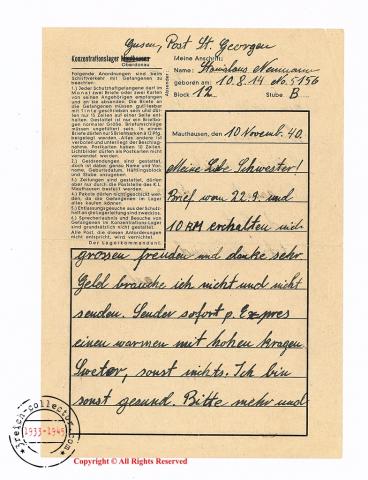 Gusen, Post St. Georgen
Konzentrationslager Mauthausen
Oberdonau
Folgende Anordnungen sind beim
Schriftverkehr mit Gefangenen zu
beachten:
1.) Jeder Schutzhaftgefangene darf im
Monat zwei Briefe oder zwei Karten
von seinen Angehörigen empfangen
und an sie absenden. Die Briefe an
die Gefangenen müssen gut lesbar
mit Tinte geschrieben sein und dür-
fen nur 15 Zeilen auf einer Seite ent-
halten. Gestattet ist nur ein Briefbo-
gen normaler Größe. Briefumschläge
müssen ungefüttert sein. In einem
Briefe dürfen nur 5 Briefmarken à 12 Pfg.
beigelegt werden. Alles andere ist ver-
boten und unterliegt der Beschlag-
nahme. Postkarten haben 10 Zeilen.
Lichtbilder dürfen als Postkarten nicht
verwendet werden.
2.) Geldsendungen sind gestattet,
doch ist dabei genau Name und Vor-
name, Geburtsdatum, Häftlingsblock
und Stube anzugeben.
3.) Zeitungen sind gestattet, dürfen
aber nur durch die Poststelle des K. L.
Mauthausen bestellt werden.
4.) Pakete dürfen nicht geschickt werden,
da die Gefangenen im Lager
alles kaufen können.
5.) Entlassungsgesuche aus der Schutz-
haft an die Lagerleitung sind zwecklos.
6.) Sprecherlaubnis und Besuche von
Gefangenen im Konzentrations-Lager
sind grundsätzlich nicht gestattet.
Alle Post, die diesen Anforderungen
nicht entspricht, wird vernichtet.
Der Lagerkommandant.
Meine Anschrift:
Name: Stanislaus Neumann
geboren am: 10.8.14 No. 5156
Block 12 Stube B
Mauthausen, den 10 Novemb. 40.
Meine Liebe Schwester!
Brief vom 22.9. und
10 RM erchalten mit
grossen freuden und danke sehr
Geld brauche ich nicht und nicht
senden. Sender sofort p. Expres
einen warmen mit hohen kragen
Sweter, sonst nichts. Ich bin
sonst gesund. Bitte mehr und
3reich-collector.com
1933-1945
Copyright © All Rights Reserved